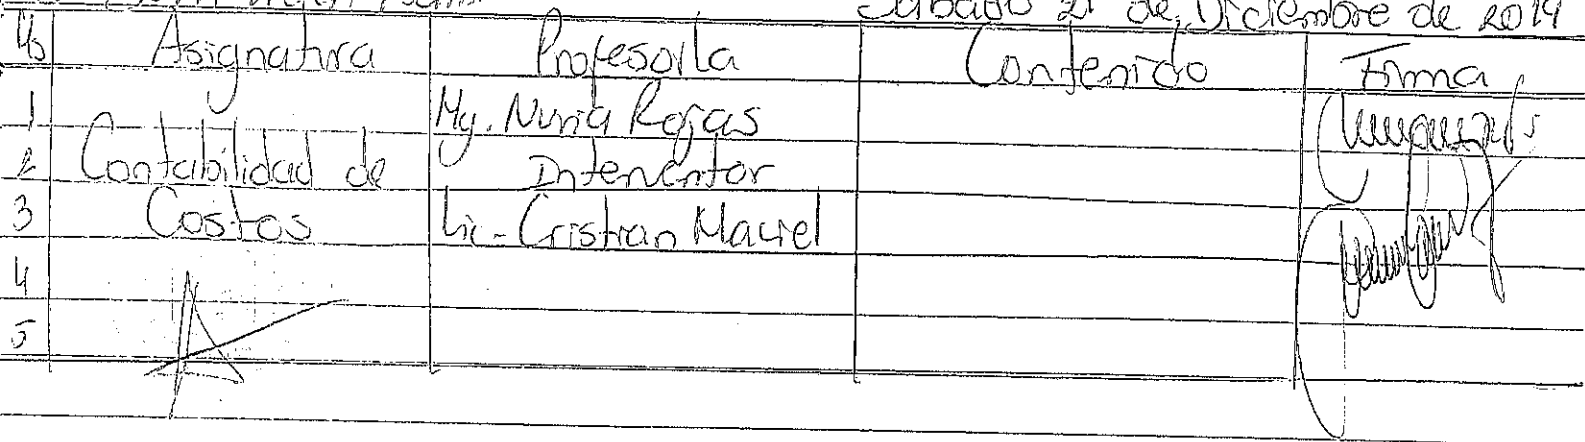 Sábado 21 de Diciembre de 2019
Hs Asignatura Profesor/la Contenido Firma
1 Mg. Nuria Rojas
2 Contabilidad de Interventor
3 Costos Lic. Cristian Maciel
4
5